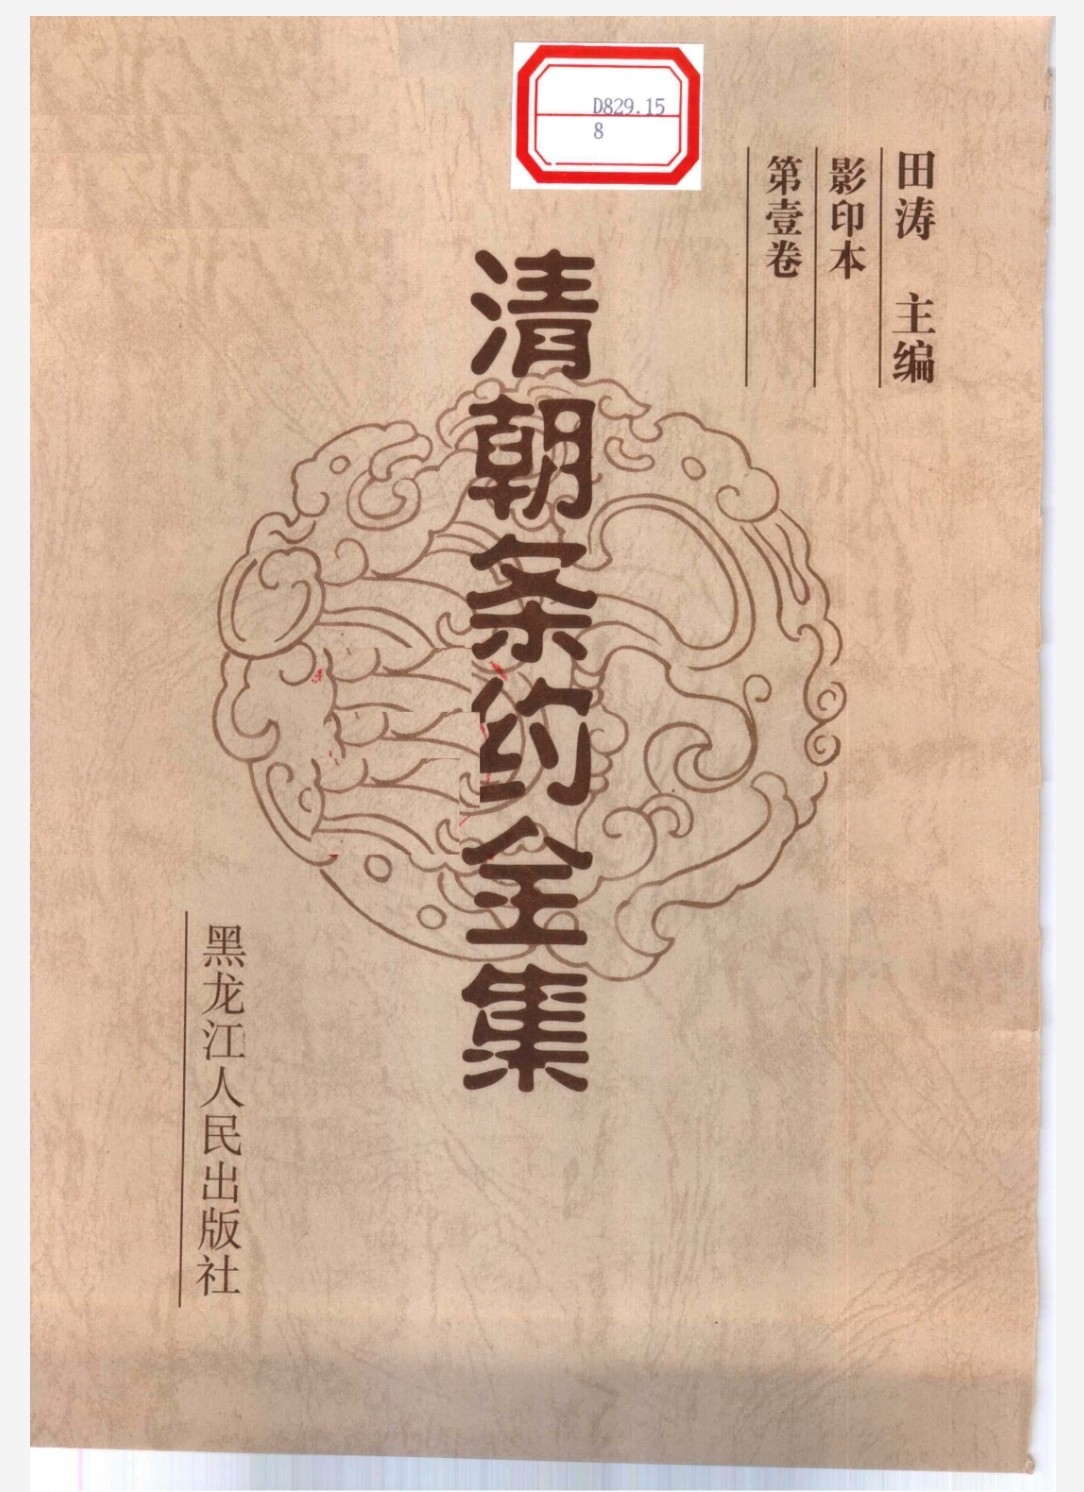 D829.15
8
田涛 主编
影印本
第壹卷
清朝条约全集
黑龙江人民出版社